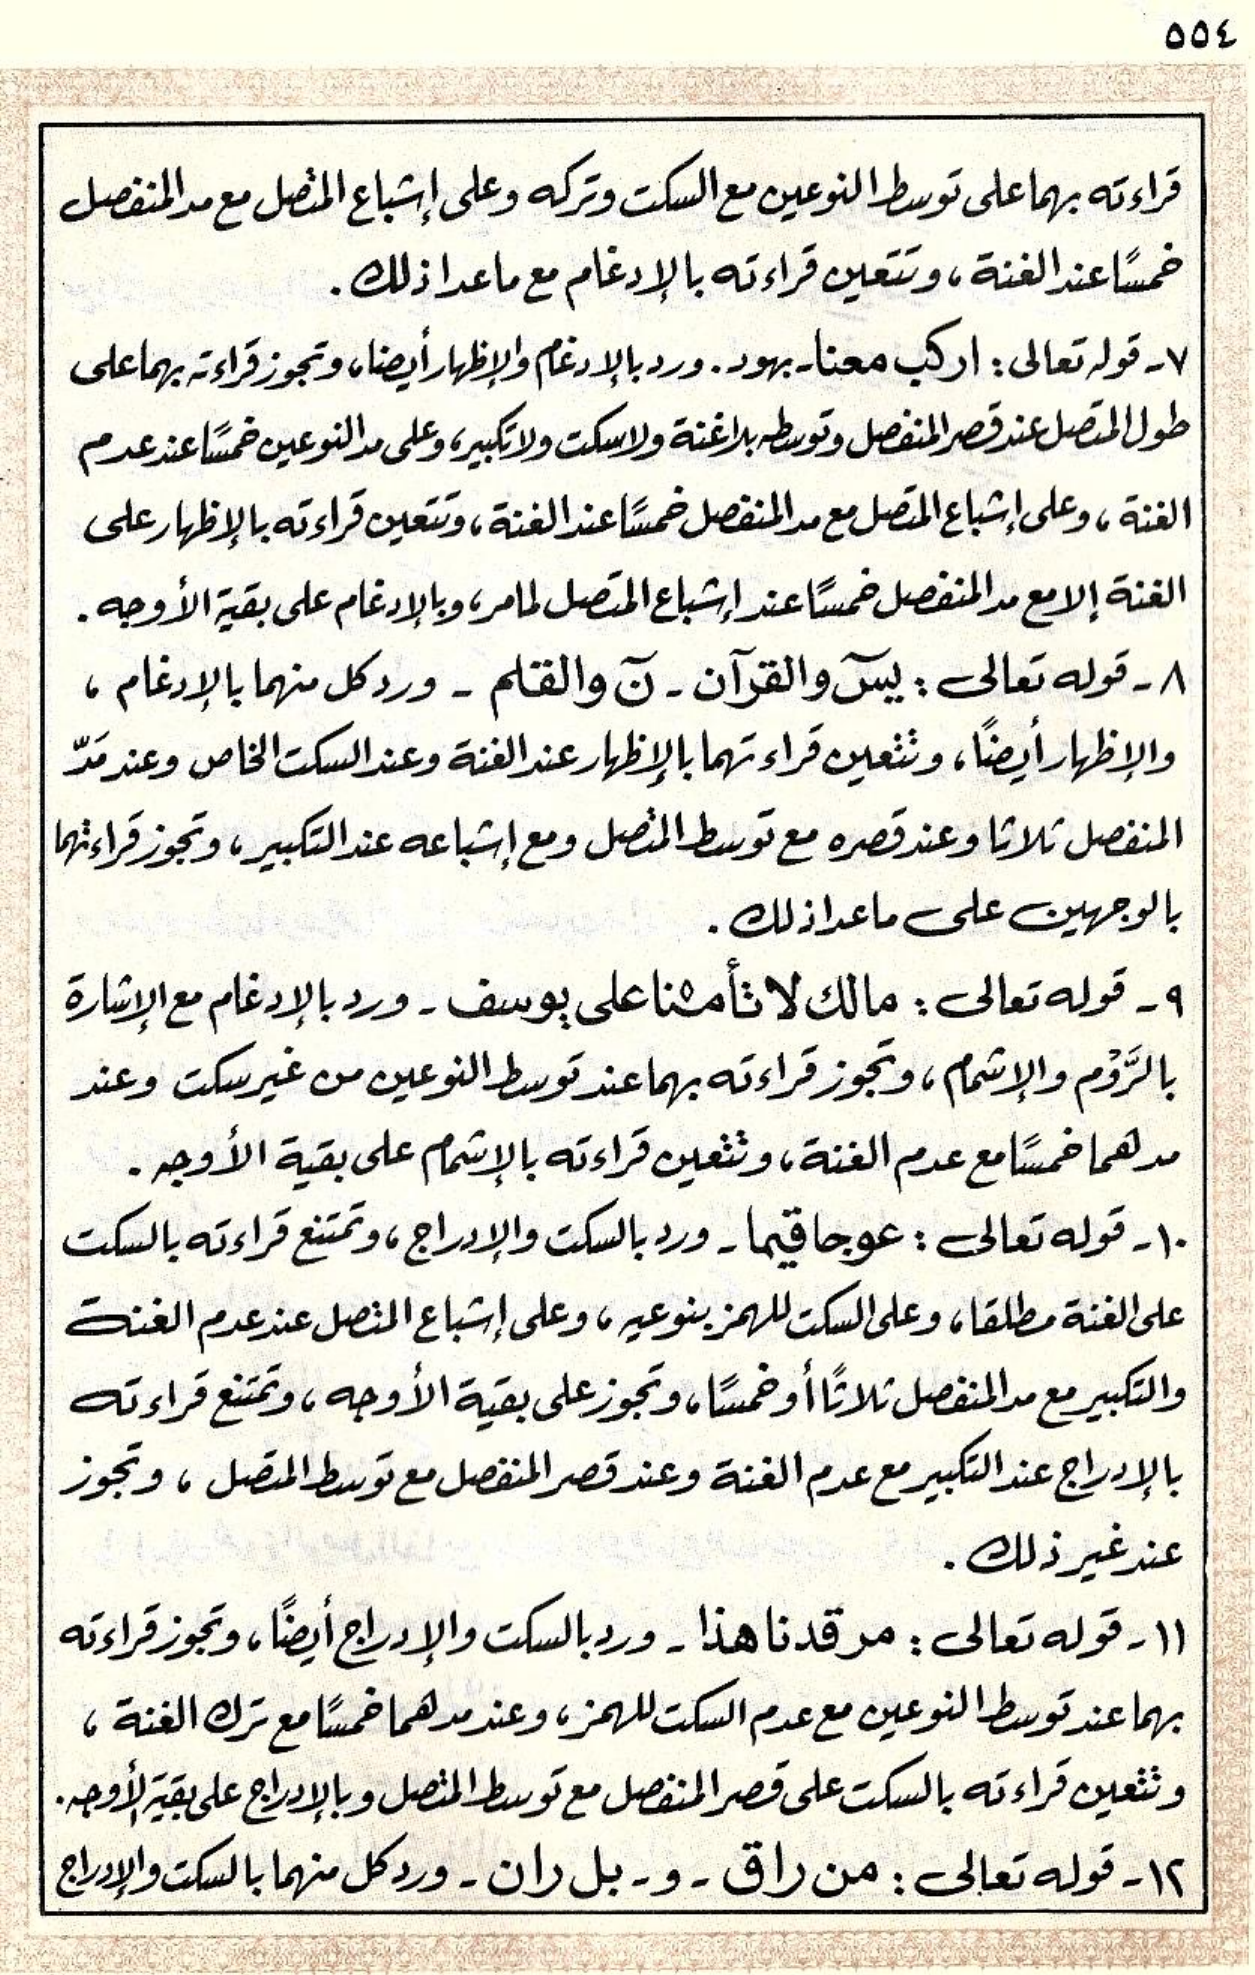 ٥٥٤
قراءته بهما على توسط النوعين مع السكت وتركه وعلى إشباع المتصل مع مد المنفصل
خمسًا عند الغنة ، وتتعين قراءته بالإدغام مع ما عدا ذلك .
٧ - قوله تعالى : اركب معنا - بهود . ورد بالإدغام والإظهار أيضا ، وتجوز قراءته بهما على
طول المتصل عند قصر المنفصل وتوسطه بلا غنة ولا سكت ولا تكبير ، وعلى مد النوعين خمسًا عند عدم
الغنة ، وعلى إشباع المتصل مع مد المنفصل خمسًا عند الغنة ، وتتعين قراءته بالإظهار على
الغنة إلا مع مد المنفصل خمسًا عند إشباع المتصل لما مر ، وبالإدغام على بقية الأوجه .
٨ - قوله تعالى : يسٓ والقرآن - نٓ والقلم - ورد كل منهما بالإدغام ،
والإظهار أيضًا ، وتتعين قراءتهما بالإظهار عند الغنة وعند السكت الخاص وعند مَدّ
المنفصل ثلاثا وعند قصره مع توسط المتصل ومع إشباعه عند التكبير ، وتجوز قراءتهما
بالوجهين على ما عدا ذلك .
٩ - قوله تعالى : مالك لا تأمنا على يوسف - ورد بالإدغام مع الإشارة
بالرَّوْم والإشمام ، وتجوز قراءته بهما عند توسط النوعين من غير سكت وعند
مدهما خمسًا مع عدم الغنة ، وتتعين قراءته بالإشمام على بقية الأوجه .
١٠ - قوله تعالى : عوجا قيما - ورد بالسكت والإدراج ، وتمتنع قراءته بالسكت
على الغنة مطلقا ، وعلى السكت للهمز بنوعيه ، وعلى إشباع المتصل عند عدم الغنة
والتكبير مع مد المنفصل ثلاثًا أو خمسًا ، وتجوز على بقية الأوجه ، وتمتنع قراءته
بالإدراج عند التكبير مع عدم الغنة وعند قصر المنفصل مع توسط المتصل ، وتجوز
عند غير ذلك .
١١ - قوله تعالى : مرقدنا هذا - ورد بالسكت والإدراج أيضًا ، وتجوز قراءته
بهما عند توسط النوعين مع عدم السكت للهمز ، وعند مدهما خمسًا مع ترك الغنة ،
وتتعين قراءته بالسكت على قصر المنفصل مع توسط المتصل وبالإدراج على بقية الأوجه .
١٢ - قوله تعالى : من راق - و - بل ران - ورد كل منهما بالسكت والإدراج